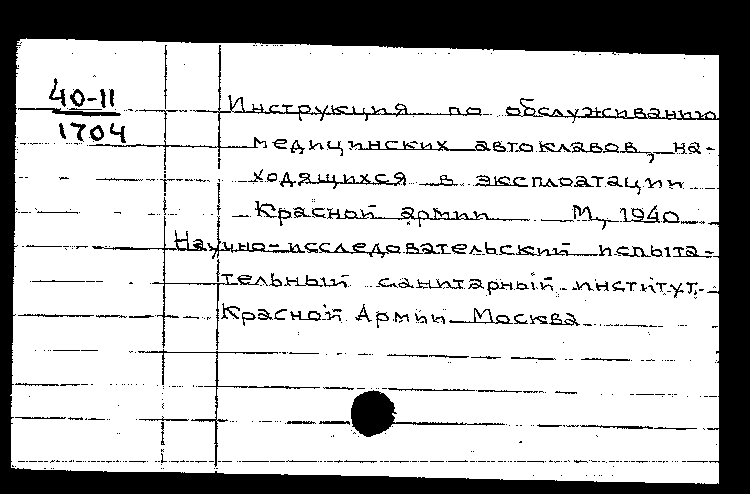 40-11
1704
Инструкция по обслуживанию
медицинских автоклавов, на-
ходящихся в эксплоатации
Красной армии М., 1940
Научно-исследовательский испыта-
тельный санитарный институт
Красной Армии Москва